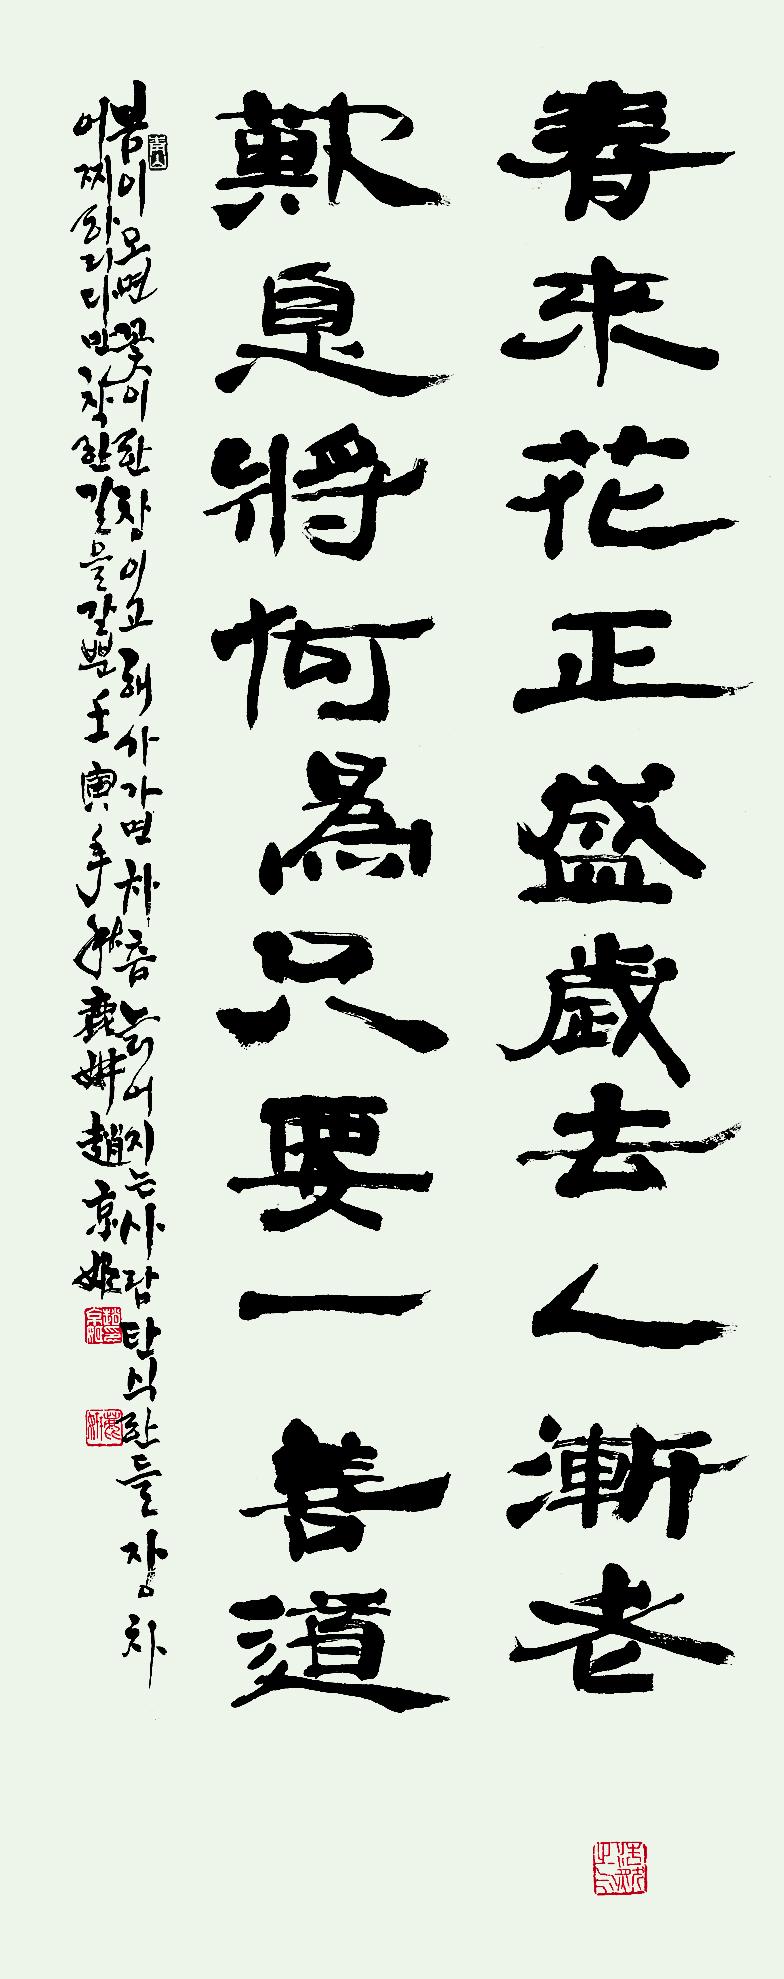 春來花正盛歲去人漸老
歎息將何爲只要一善道
봄이 오면 꽃이 한창이고 해가 가면 차츰 늙어지는 사람 탄식한들 장차
어찌하리 다만 착한 길을 갈 뿐 壬寅年 秋 鹿姸 趙京姬